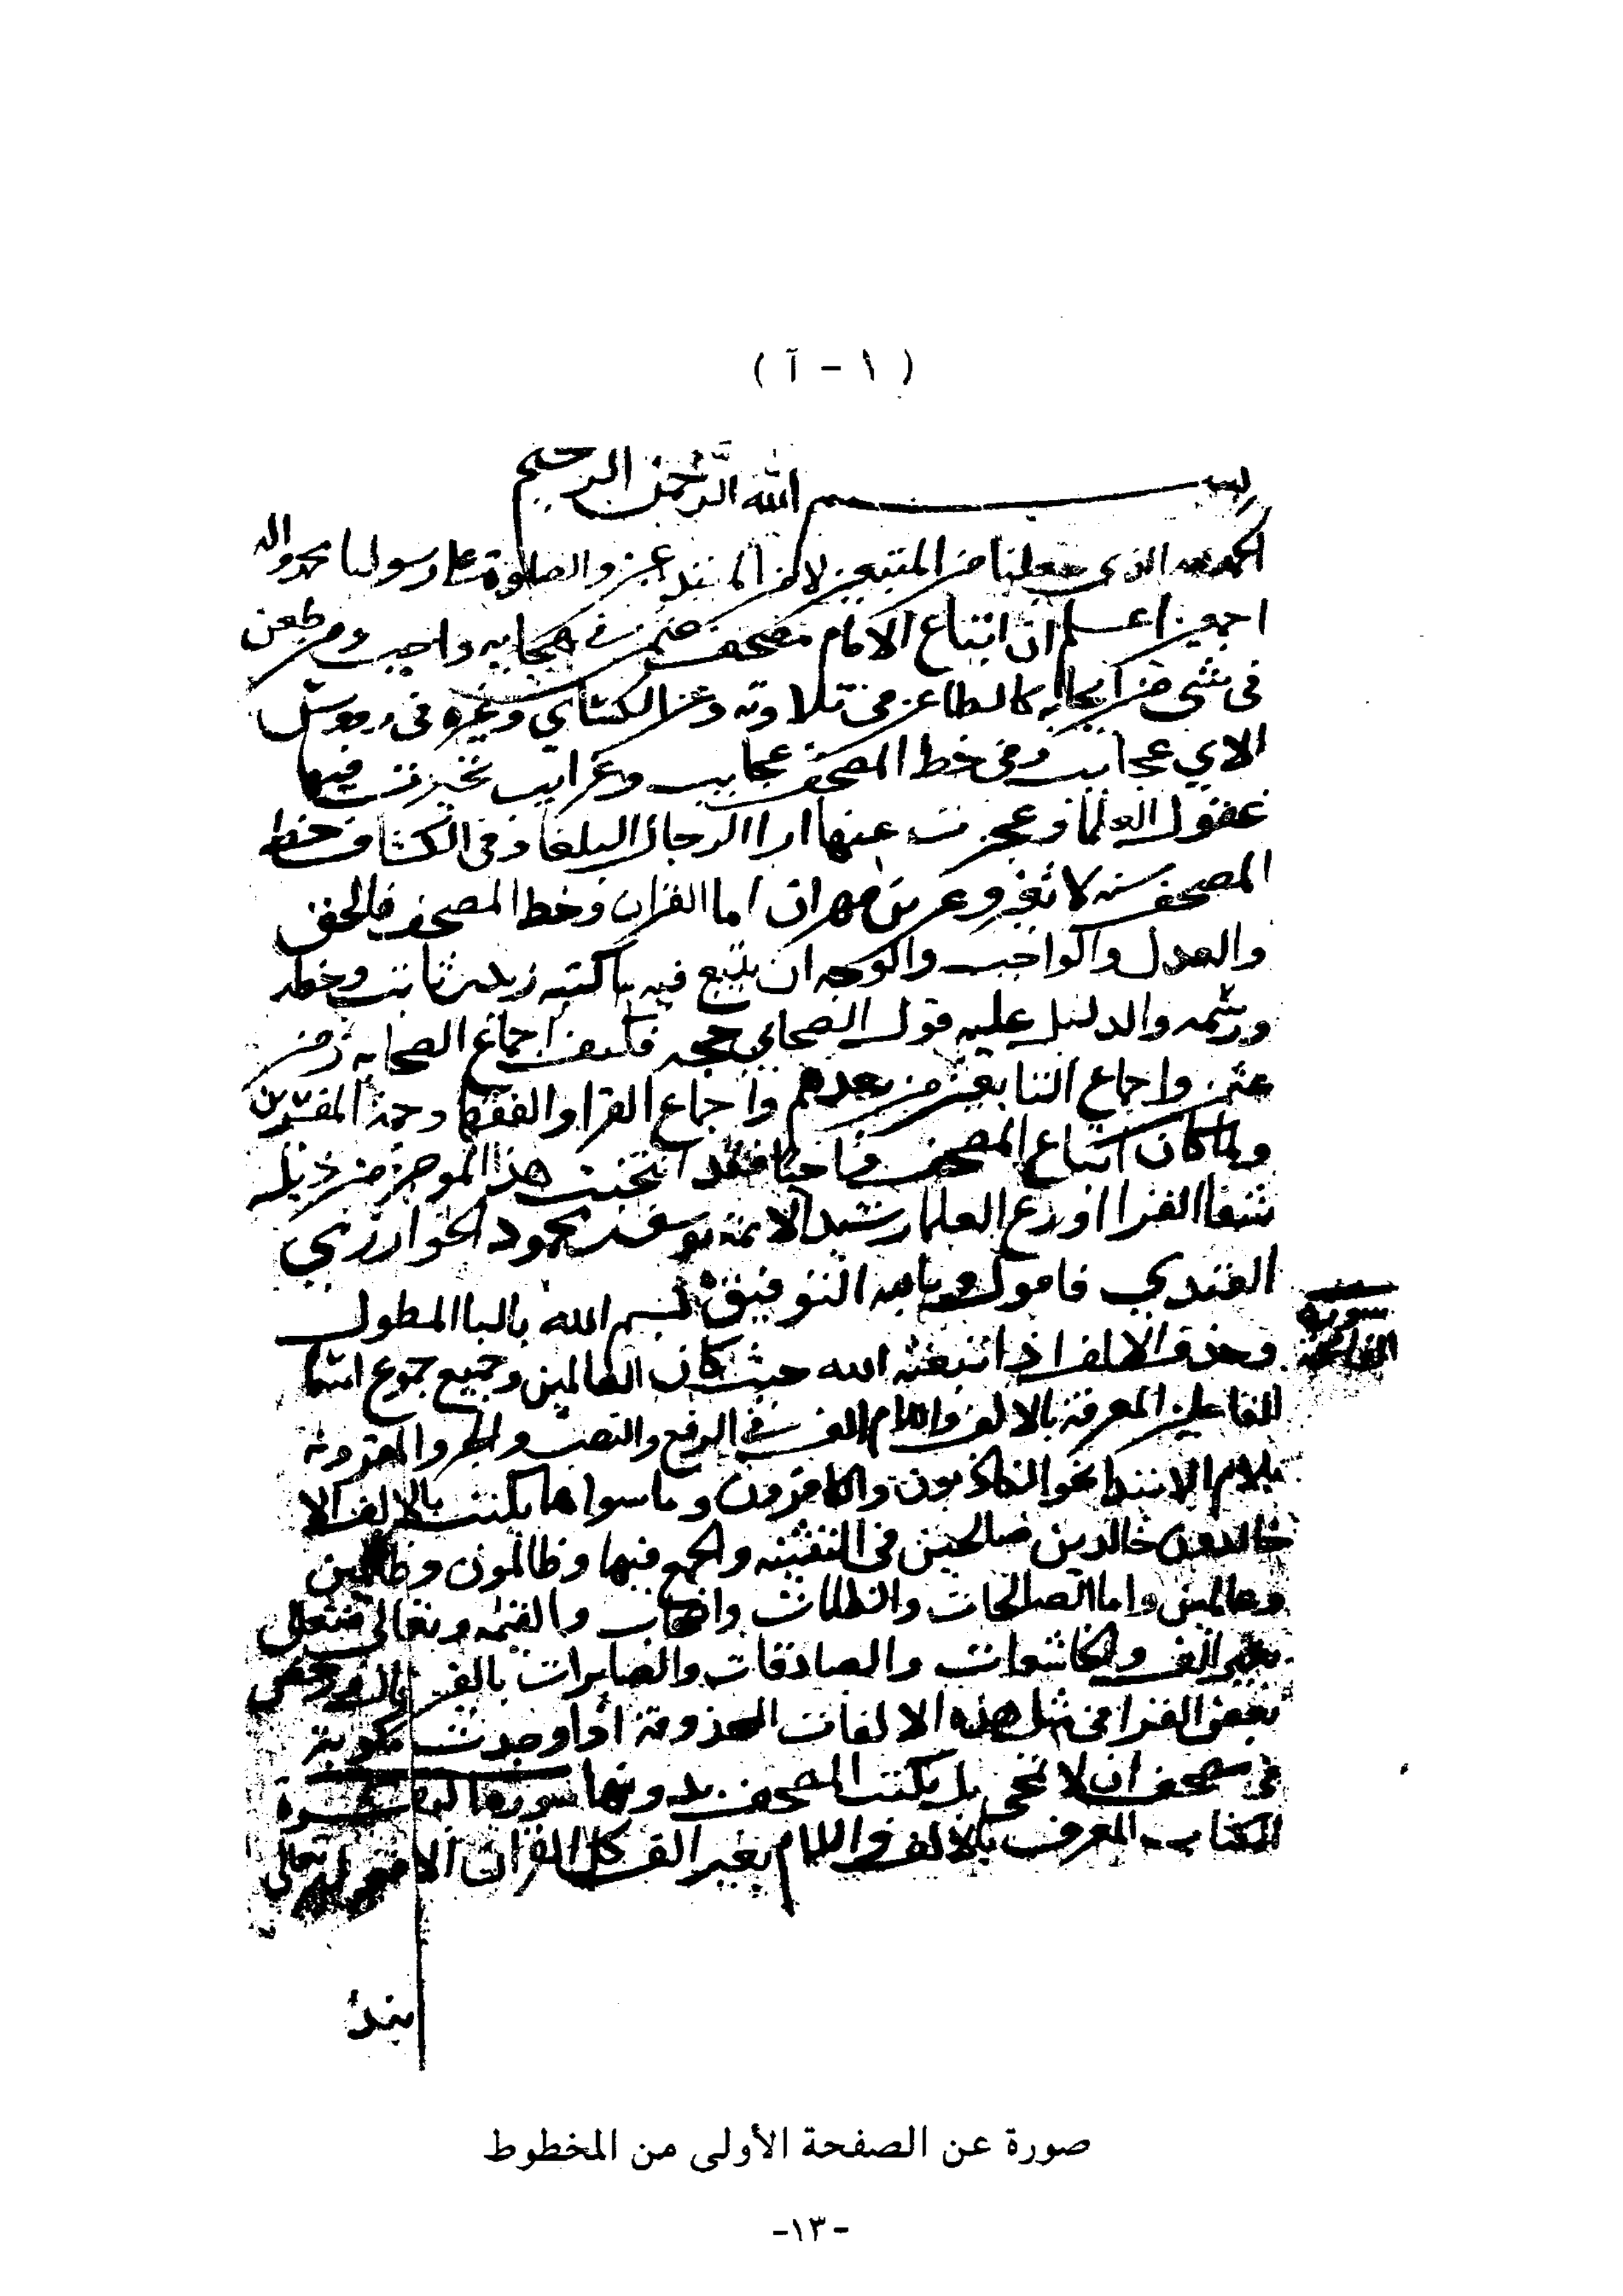 ( ١ - آ )
بسم الله الرحمن الرحيم
الحمد لله الذي جعلنا من المتبعين لا من المبتدعين والصلوة على رسولنا محمد واله
اجمعين اعلم ان اتباع الامام مصحف عثمن في هجايه واجب ومن طعن
في شي من هجايه كالطاعن في تلاوته وعن الكسائي وغيره في روس
الاي عجايب وفي خط المصحف عجايب وغرايب تحيرت فيها
عقول العلما وعجزت عنها ارا الرجال البلغا وفي الكشاف خط
المصحف سنة لا تغير وعن بن مهران اما القران وخط المصحف فالحق
والعدل والواجب والوجه ان يتبع فيه ما كتبه زيد بن ثابت وخطه
ورسمه والدليل عليه قول الصحابي حجه فكيف اجماع الصحابه زمن
عثمن واجماع التابعين من بعدهم واجماع القرا والفقها وحمد المفسرين
ولما كان اتباع المصحف واجبا فقد انتخبت هذا الموجز من
القرا اورع العلما رشيد الائمة يوسف بن محمود الخوارزمي
فاقول وبالله التوفيق بسم الله بالبا المطول
وحذف الالف اذا اتبعته الله حيث كان العالمين وجميع جموع اسما
الفاعلين المعرفة بالالف واللام بغير الف في الرفع والنصب والجر والمقرونة
بلام الابتدا نحو الكاذبون والكافرون وما سواها يكتب بالالف الا
خالدون خالدين صالحين في التثنيه والجمع فيها وظالمون وظالمين
وعالمين واما الصالحات والظلمات واصحاب والقيمه وتعالى
بغير الف والخاشعات والصادقات والصابرات بالف
بعض القرا في مثل هذه الالفات المحذوفة اذا وجدت مكتوبة
في مصحف ان لا تمحى بل يكتب المصحف بدونها سورة البقرة
الكتاب المعرف بالالف واللام بغير الف كل القران الا قوله تعالى
سورة
الفاتحة
صورة عن الصفحة الأولى من المخطوط
-١٣-